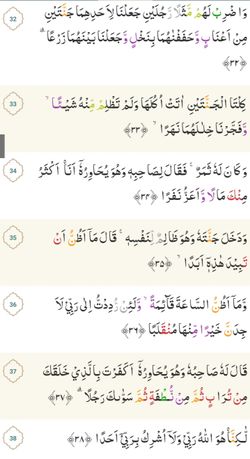 32
وَاضْرِبْ لَهُمْ مَّثَلًا رَّجُلَيْنِ جَعَلْنَا لِاَحَدِهِمَا جَنَّتَيْنِ
مِنْ اَعْنَابٍ وَّحَفَفْنٰهُمَا بِنَخْلٍ وَّجَعَلْنَا بَيْنَهُمَا زَرْعًا ۗ
﴿٣٢﴾
33
كِلْتَا الْجَنَّتَيْنِ اٰتَتْ اُكُلَهَا وَلَمْ تَظْلِمْ مِّنْهُ شَيْـًٔا ۙ
وَّفَجَّرْنَا خِلٰلَهُمَا نَهَرًا ۙ ﴿٣٣﴾
34
وَكَانَ لَهٗ ثَمَرٌ ۚ فَقَالَ لِصَاحِبِهٖ وَهُوَ يُحَاوِرُهٗٓ اَنَا۠ اَكْثَرُ
مِنْكَ مَالًا وَّاَعَزُّ نَفَرًا ﴿٣٤﴾
35
وَدَخَلَ جَنَّتَهٗ وَهُوَ ظَالِمٌ لِّنَفْسِهٖ ۚ قَالَ مَآ اَظُنُّ اَنْ
تَبِيْدَ هٰذِهٖٓ اَبَدًا ۙ ﴿٣٥﴾
36
وَّمَآ اَظُنُّ السَّاعَةَ قَآئِمَةً ۙ وَّلَئِنْ رُّدِدْتُّ اِلٰى رَبِّيْ لَاَ
جِدَنَّ خَيْرًا مِّنْهَا مُنْقَلَبًا ۚ ﴿٣٦﴾
37
قَالَ لَهٗ صَاحِبُهٗ وَهُوَ يُحَاوِرُهٗٓ اَكَفَرْتَ بِالَّذِيْ خَلَقَكَ
مِنْ تُرَابٍ ثُمَّ مِنْ نُّطْفَةٍ ثُمَّ سَوّٰىكَ رَجُلًا ۗ ﴿٣٧﴾
38
لٰكِنَّا۠ هُوَ اللّٰهُ رَبِّيْ وَلَآ اُشْرِكُ بِرَبِّيْٓ اَحَدًا ﴿٣٨﴾